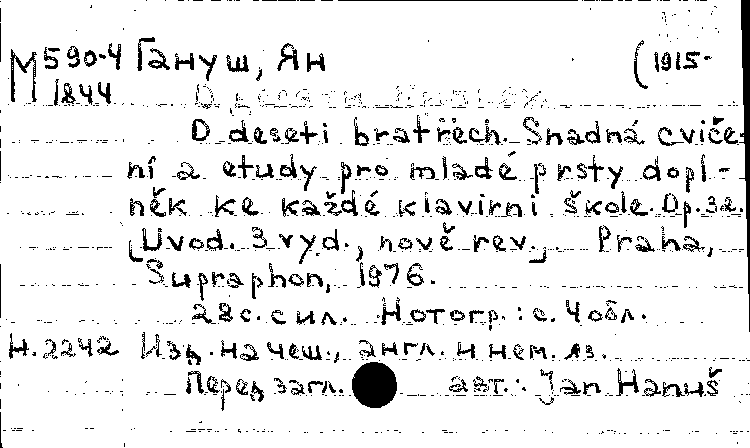 М 590-4 Гануш, Ян (1915-
1844
О десяти
O deseti bratřech. Snadná cviče-
ní a etudy pro mladé prsty dopl-
něk ke každé klavirni škole. Op. 32.
[Uvod. 3 vyd., nově rev.]. Praha,
Supraphon, 1976.
28 с. с ил. Нотогр.: с. 4 обл.
Н. 2242 Изд. на чеш., англ. и нем. яз.
Перед загл. авт.: Jan Hanuš